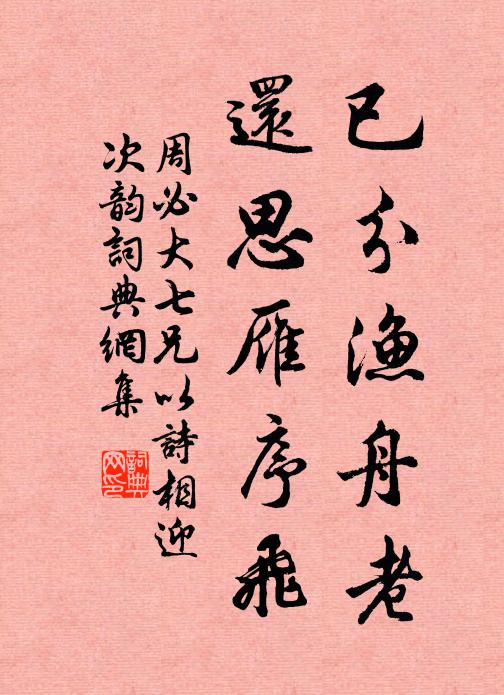 已分漁舟老
還思雁序飛
周必大七兄以詩相迎
次韵詞典網集
詞典網印